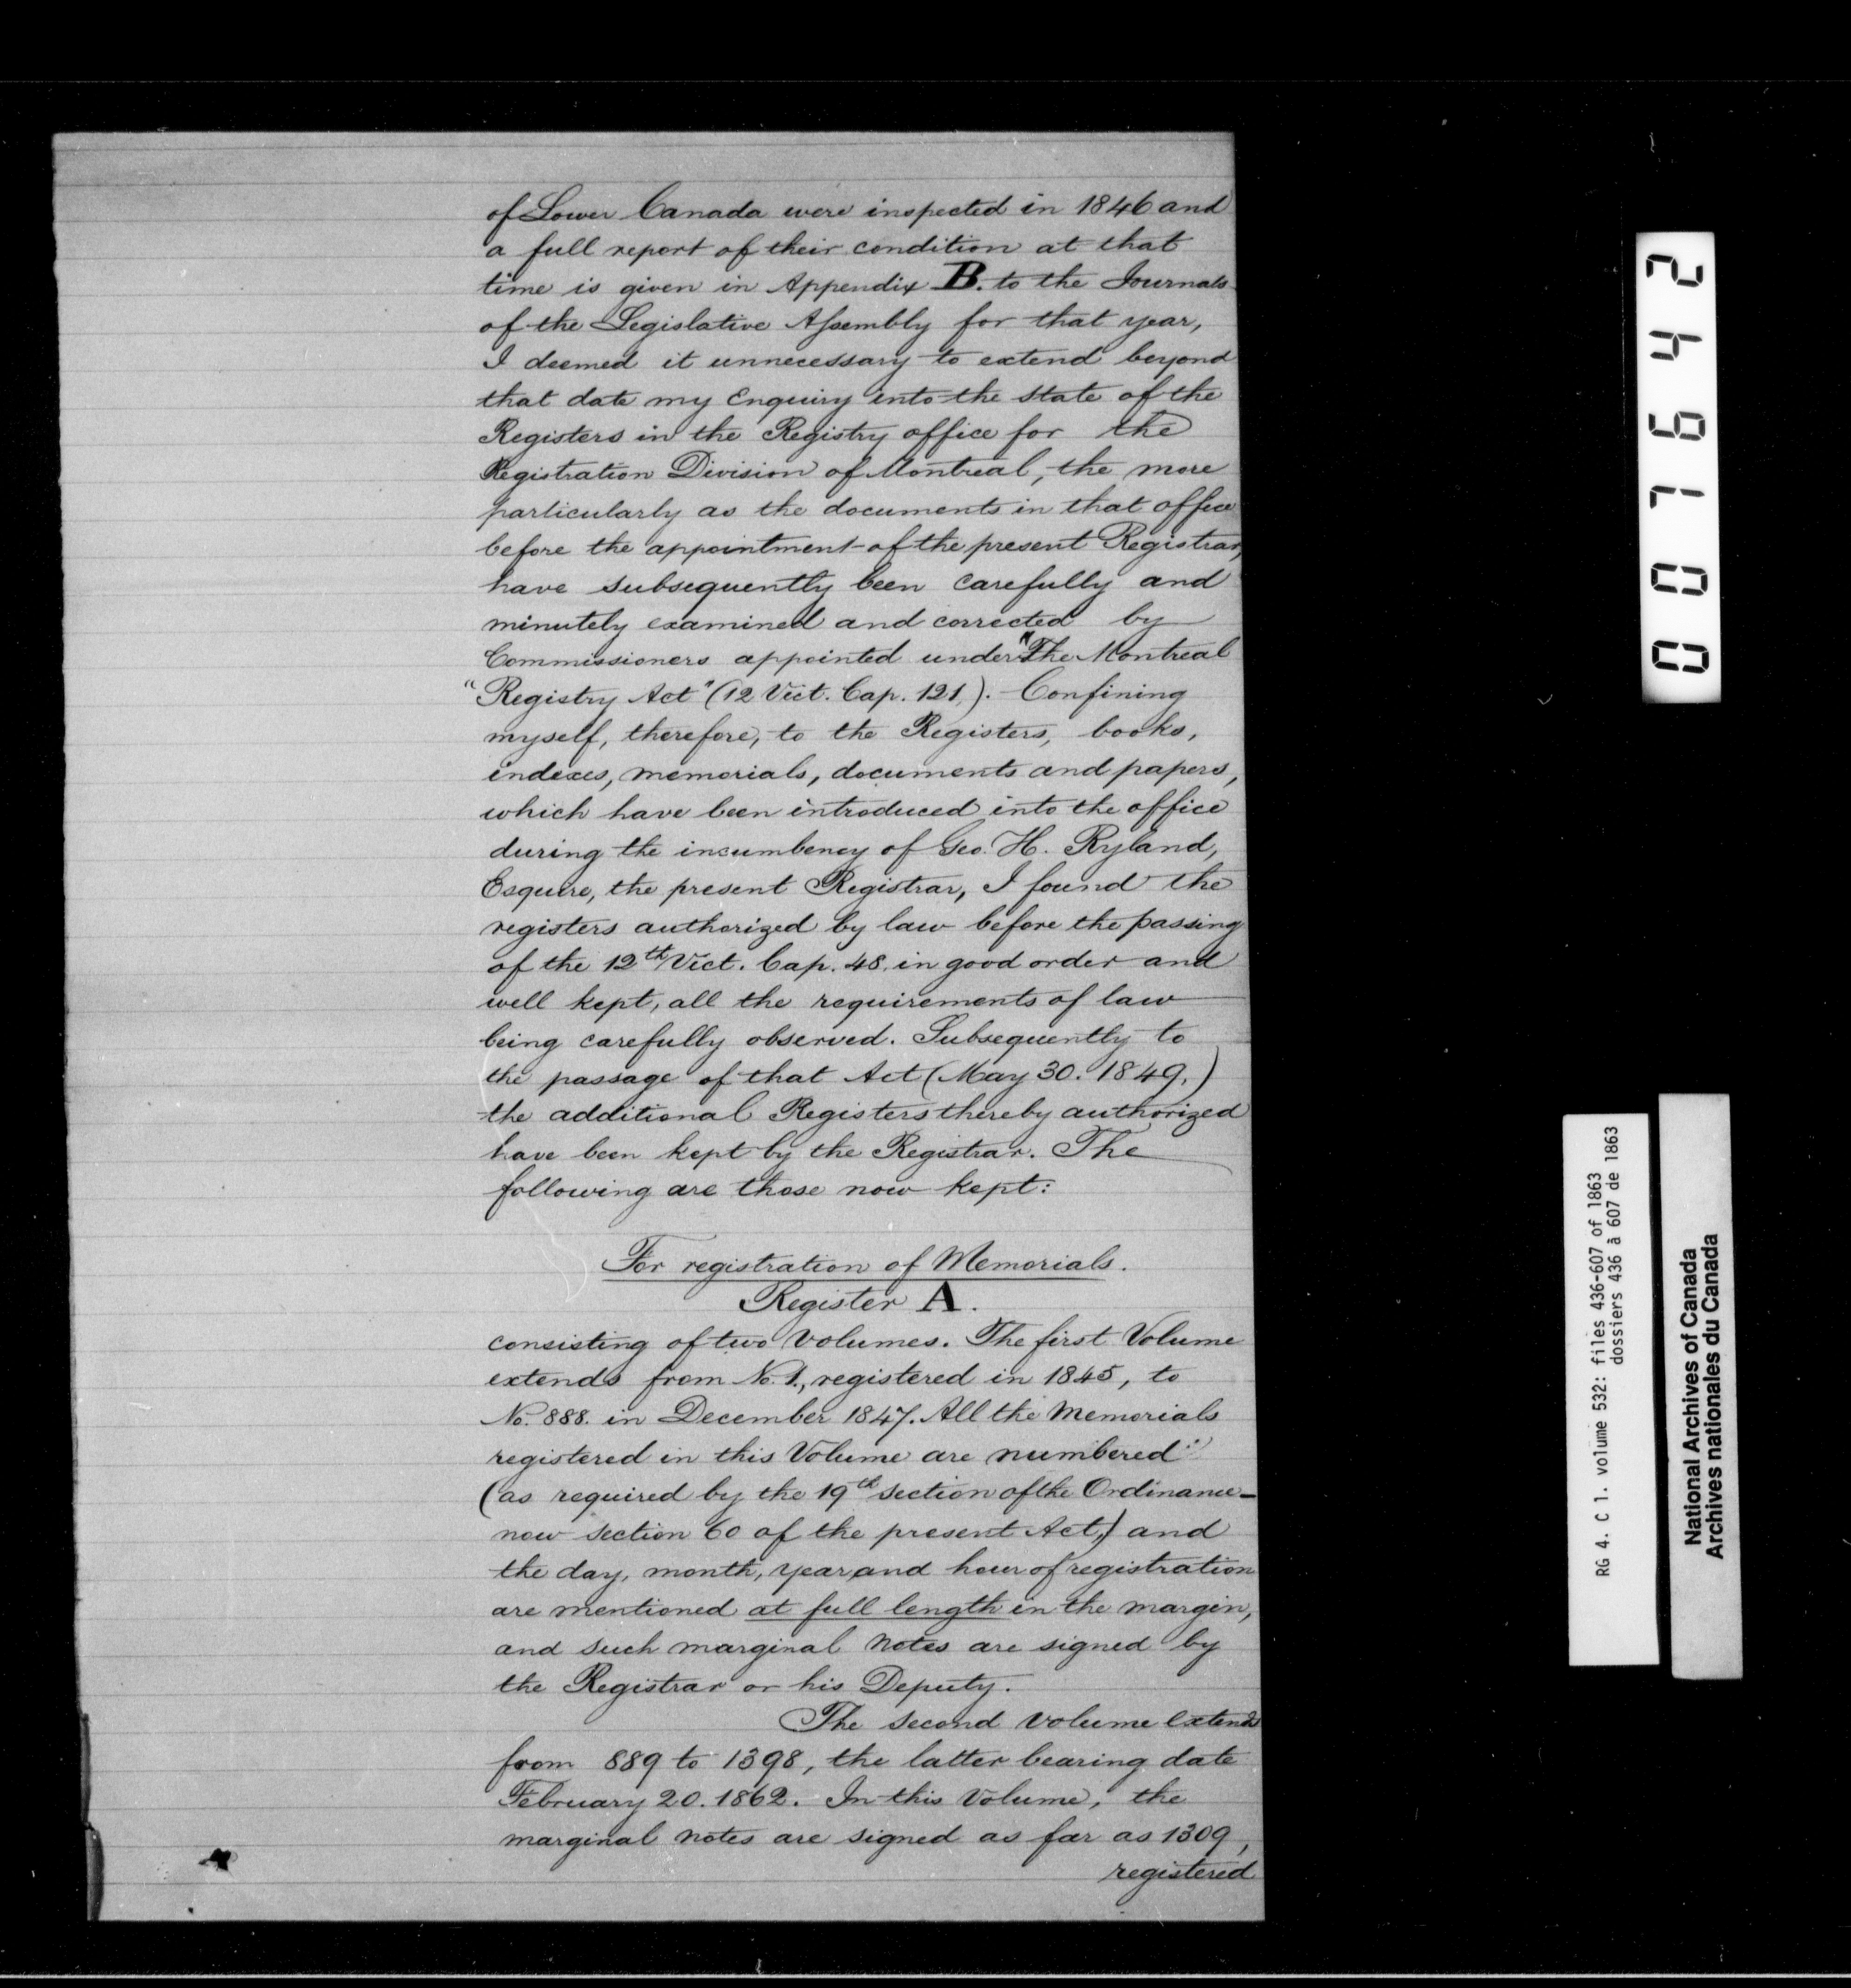 of Lower Canada were inspected in 1846 and
a full report of their condition at that
time is given in Appendix B. to the Journals
of the Legislative Assembly for that year,
I deemed it unnecessary to extend beyond
that date my Enquiry into the state of the
Registers in the Registry office for the
Registration Division of Montreal, the more
particularly as the documents in that office
before the appointment of the present Registrar,
have subsequently been carefully and
minutely examined and corrected by
Commissioners appointed under "The Montreal
"Registry Act" (12 Vict. Cap. 121.). Confining
myself, therefore, to the Registers, books,
indexes, memorials, documents and papers,
which have been introduced into the office
during the incumbency of Geo. H. Ryland,
Esquire, the present Registrar, I found the
registers authorized by law before the passing
of the 12th Vict. Cap. 48. in good order and
well kept, all the requirements of law
being carefully observed. Subsequently to
the passage of that Act (May 30. 1849.)
the additional Registers thereby authorized
have been kept by the Registrar. The
following are those now kept:
For registration of Memorials.
Register A.
consisting of two volumes. The first Volume
extends from No. 1., registered in 1845, to
No. 888. in December 1847. All the Memorials
registered in this Volume are numbered
(as required by the 19th section of the Ordinance—
now section 60 of the present Act,) and
the day, month, year, and hour of registration
are mentioned at full length in the margin,
and such marginal notes are signed by
the Registrar or his Deputy.
The second volume extends
from 889 to 1398, the latter bearing date
February 20. 1862. In this Volume, the
marginal notes are signed as far as 1309,
registered
007642
RG 4. C 1. volume 532: files 436-607 of 1863
dossiers 436 à 607 de 1863
National Archives of Canada
Archives nationales du Canada